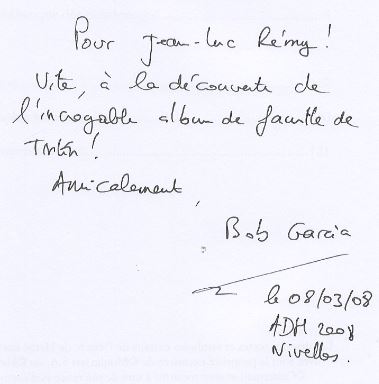 Pour Jean-Luc Rémy !
Vite, à la découverte de
l'incroyable album de famille de
Tintin !
Amicalement,
Bob Garcia
le 08/03/08
ADH 2008
Nivelles.